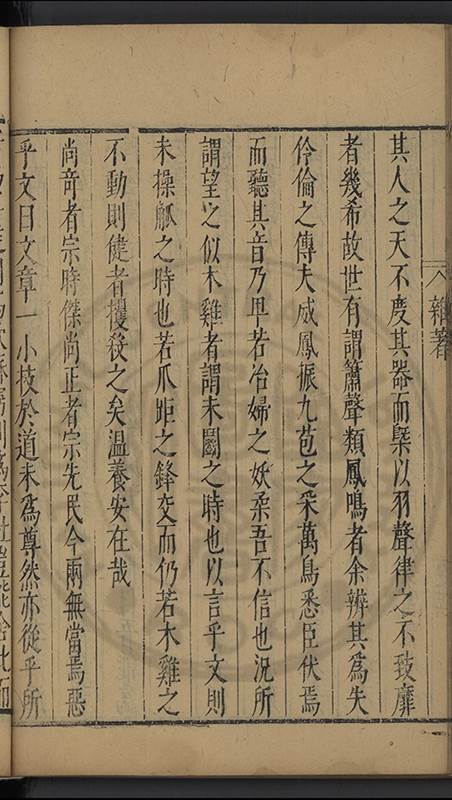 雜著
其人之天不度其器而槩以羽聲律之不致靡
者幾希故世有謂簫聲類鳳鳴者余辨其為失
伶倫之傳夫威鳳振九苞之采萬鳥悉臣伏焉
而聽其音乃卑若冶婦之妖柔吾不信也況所
謂望之似木雞者謂未鬭之時也以言乎文則
未操觚之時也若爪距之鋒交而仍若木雞之
不動則健者攫殺之矣溫養安在哉
尚奇者宗時傑尚正者宗先民今兩無當焉惡
乎文曰文章一小技於道未為尊然亦從乎所